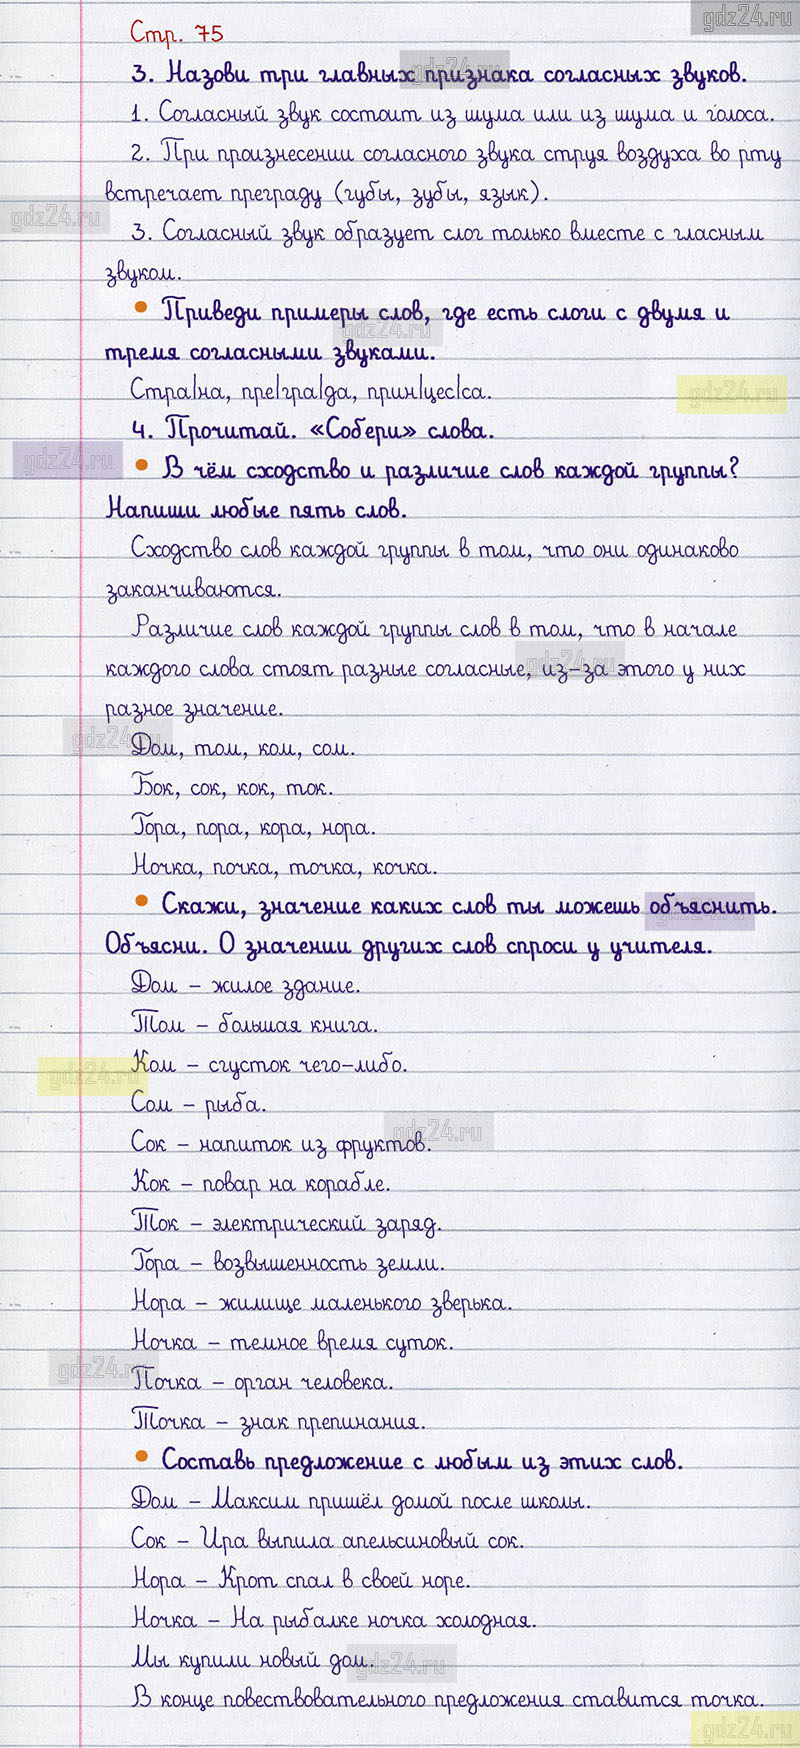 gdz24.ru
Стр. 75
3. Назови три главных признака согласных звуков.
gdz24.ru
1. Согласный звук состоит из шума или из шума и голоса.
2. При произнесении согласного звука струя воздуха во рту
встречает преграду (губы, зубы, язык).
gdz24.ru
3. Согласный звук образует слог только вместе с гласным
звуком.
• Приведи примеры слов, где есть слоги с двумя и
gdz24.ru
тремя согласными звуками.
Стра|на, пре|гра|да, прин|цес|са.
gdz24.ru
4. Прочитай. «Собери» слова.
gdz24.ru
• В чём сходство и различие слов каждой группы?
Напиши любые пять слов.
Сходство слов каждой группы в том, что они одинаково
заканчиваются.
Различие слов каждой группы слов в том, что в начале
каждого слова стоят разные согласные, из-за этого у них
gdz24.ru
разное значение.
gdz24.ru
Дом, том, ком, сом.
Бок, сок, кок, ток.
Гора, пора, кора, нора.
Ночка, почка, точка, кочка.
• Скажи, значение каких слов ты можешь объяснить.
gdz24.ru
Объясни. О значении других слов спроси у учителя.
Дом – жилое здание.
Том – большая книга.
Ком – сгусток чего-либо.
gdz24.ru
Сом – рыба.
gdz24.ru
Сок – напиток из фруктов.
Кок – повар на корабле.
Ток – электрический заряд.
Гора – возвышенность земли.
Нора – жилище маленького зверька.
Ночка – темное время суток.
gdz24.ru
Почка – орган человека.
Точка – знак препинания.
• Составь предложение с любым из этих слов.
Дом – Максим пришёл домой после школы.
Сок – Ира выпила апельсиновый сок.
Нора – Крот спал в своей норе.
Ночка – На рыбалке ночка холодная.
Мы купили новый дом.
gdz24.ru
В конце повествовательного предложения ставится точка.
gdz24.ru